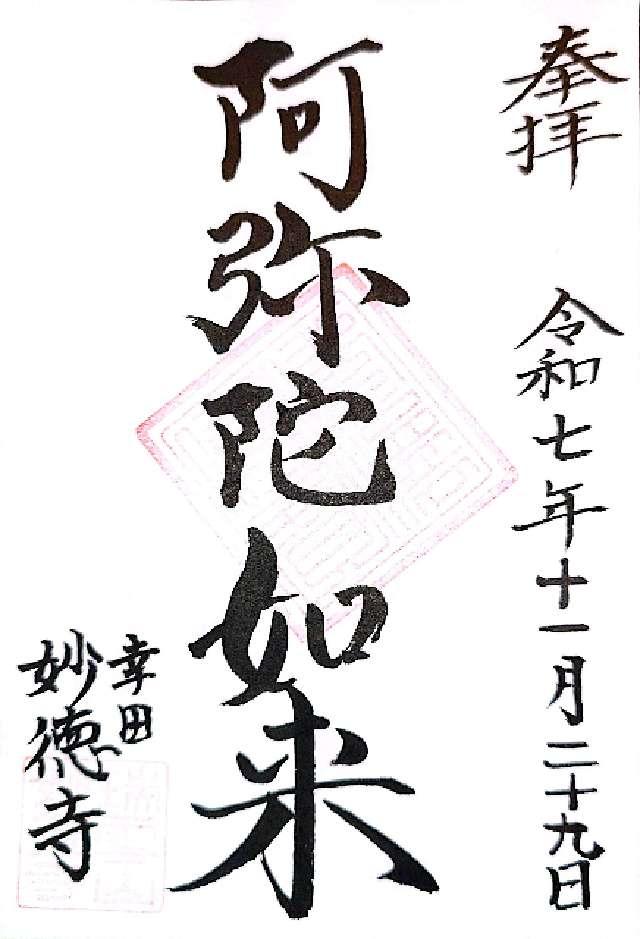 奉拝
令和七年十一月二十九日
阿弥陀如来
幸田
妙徳寺